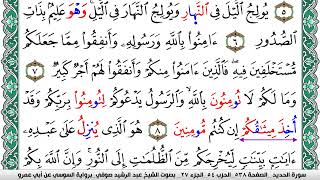 ٥ يُولِجُ ٱلَّيْلَ فِي ٱلنَّهَارِ وَيُولِجُ ٱلنَّهَارَ فِي ٱلَّيْلِ وَهْوَ عَلِيمٌۢ بِذَاتِ
ٱلصُّدُورِ ٦ ءَامِنُوا۟ بِٱللَّهِ وَرَسُولِهِۦ وَأَنفِقُوا۟ مِمَّا جَعَلَكُم
مُّسْتَخْلَفِينَ فِيهِ فَٱلَّذِينَ ءَامَنُوا۟ مِنكُمْ وَأَنفَقُوا۟ لَهُمْ أَجْرٌ كَبِيرٌ ٧
وَمَا لَكُمْ لَا تُومِنُونَ بِٱللَّهِ وَٱلرَّسُولُ يَدْعُوكُمْ لِتُومِنُوا۟ بِرَبِّكُمْ وَقَدْ
أُخِذَ مِيثَٰقُكُمْ إِن كُنتُم مُّومِنِينَ ٨ هُوَ ٱلَّذِي يُنزِلُ عَلَىٰ عَبْدِهِۦ
ءَايَٰتٍۭ بَيِّنَٰتٍ لِّيُخْرِجَكُم مِّنَ ٱلظُّلُمَٰتِ إِلَى ٱلنُّورِ وَإِنَّ ٱللَّهَ
سورة الحديد - الصفحة ٥٣٨ - الحزب ٥٤ - الجزء ٢٧ - بصوت الشيخ عبد الرشيد صوفي - برواية السوسي عن أبي عمرو